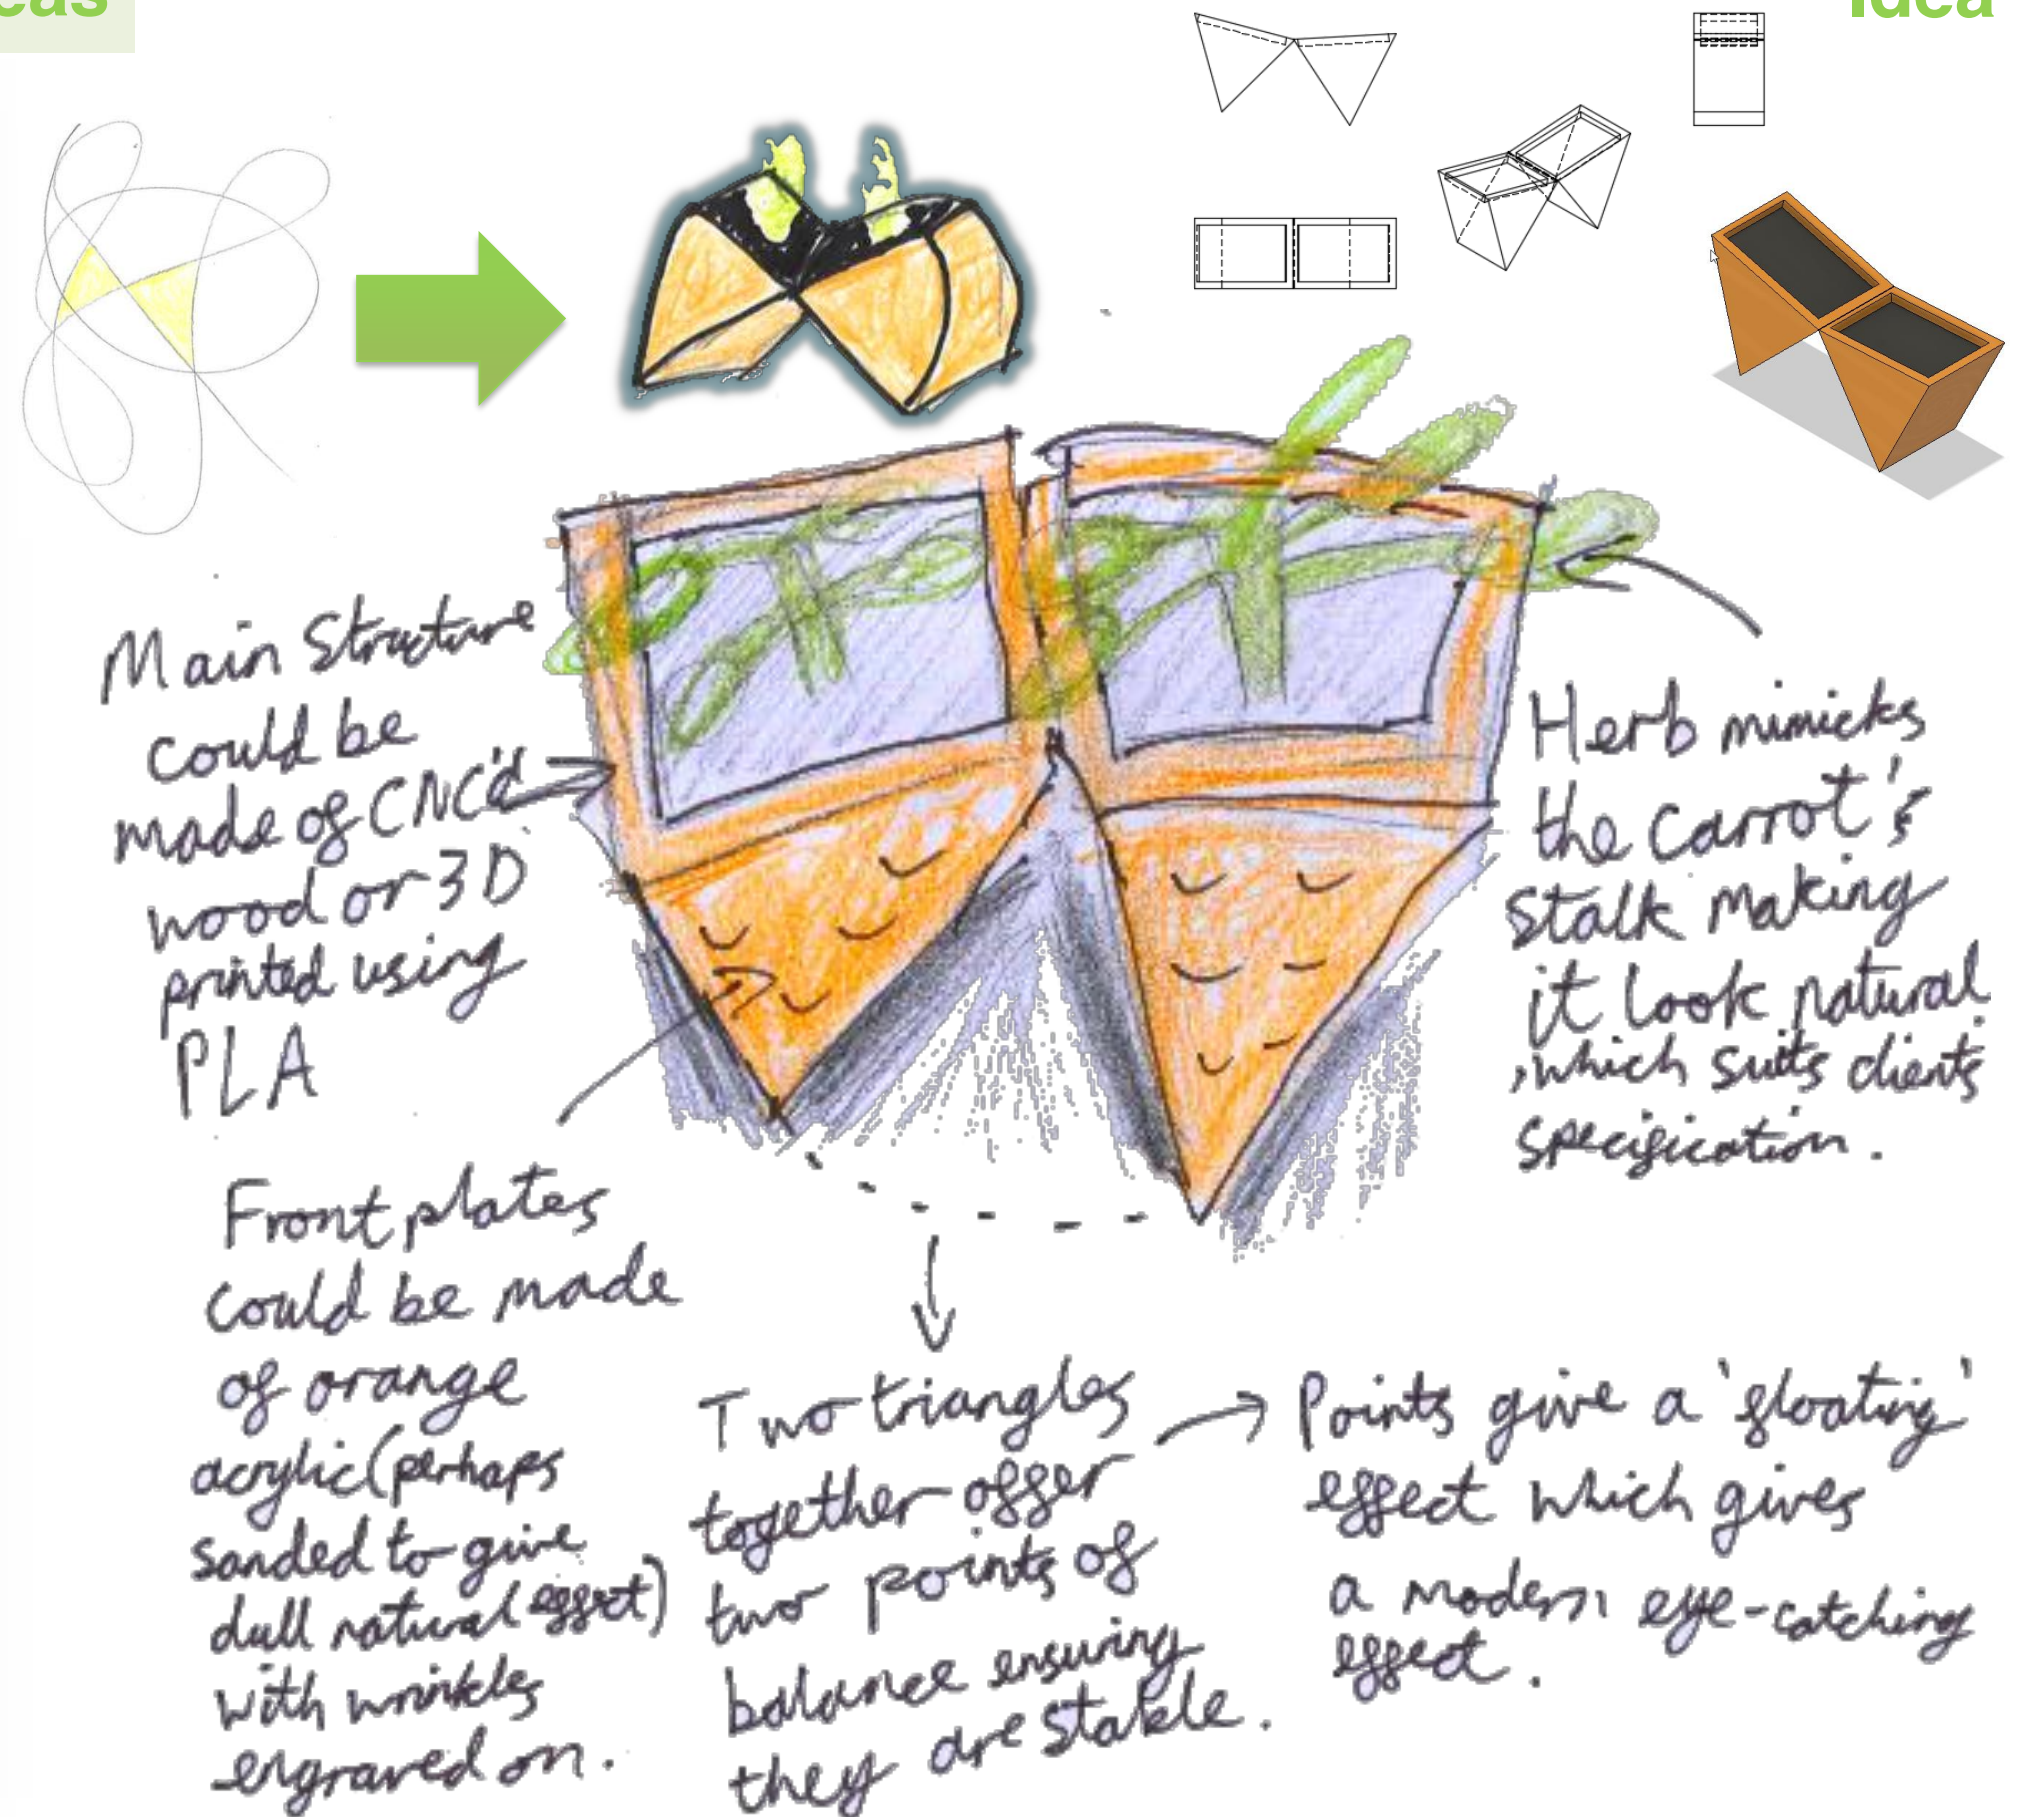 eas
idea
Main Structure
could be
made of CNC'd
wood or 3D
printed using
PLA
Herb mimicks
the carrot's
stalk making
it look natural
, which suits clients
specification.
Front plates
could be made
of orange
acrylic (perhaps
sanded to give
dull natural effect)
with wrinkles
engraved on.
Two triangles
together offer
two points of
balance ensuring
they are stable.
Points give a 'floating'
effect which gives
a modern eye-catching
effect.